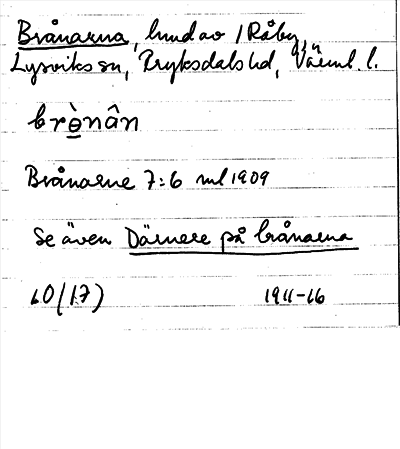 Brånarna, hmd av /Råby,
Lysviks sn, Fryksdals hd, Värml. l.
brènân
Brånarne 7:6 ml 1909
Se även Därnere på brånarna
LO(17) 1911-16